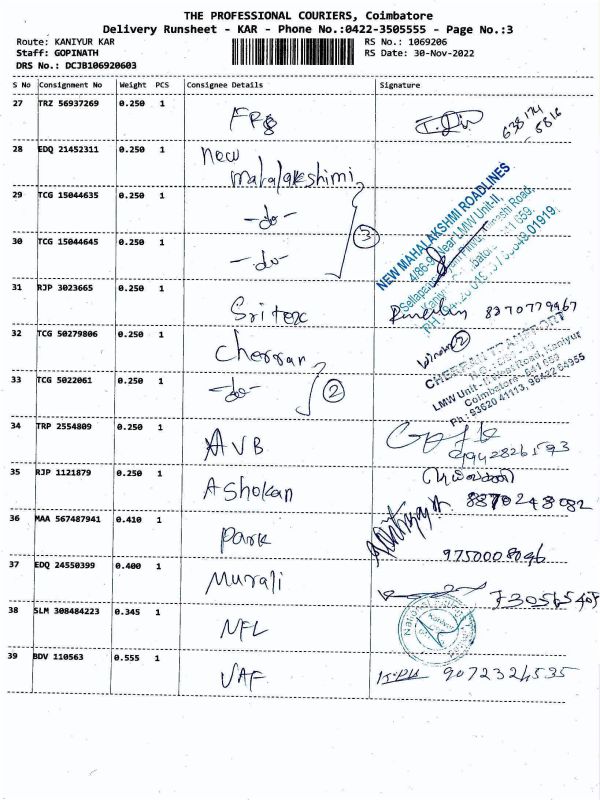 THE PROFESSIONAL COURIERS, Coimbatore
Delivery Runsheet - KAR - Phone No.:0422-3505555 - Page No.:3
Route: KANIYUR KAR
RS No.: 1069206
Staff: GOPINATH
RS Date: 30-Nov-2022
DRS No.: DCJB106920603
S No Consignment No Weight PCS Consignee Details Signature
27 TRZ 56937269 0.250 1 FRg 638174 5816
28 EDQ 21452311 0.250 1 New Mahalakshimi
29 TCG 15044635 0.250 1 -do-
30 TCG 15044645 0.250 1 -do- 3
NEW MAHALAKSHMI ROADLINES
4/86-9, Near LMW Unit-II,
31 RJP 3023665 0.250 1 Sritex 8270779467
32 TCG 50279806 0.250 1 Cherran 2
33 TCG 5022061 0.250 1 -do- 2
CHERRAN TRANSPORT
LMW Unit - II, West Road, Kaniyur
Coimbatore - 641 659
Ph : 93620 41113, 96422 64955
34 TRP 2554809 0.250 1 AVB 99428261593
35 RJP 1121879 0.250 1 Ashokan 8870248082
36 MAA 567487941 0.410 1 Park 9750008096
37 EDQ 24550399 0.400 1 Murali
38 SLM 308484223 0.345 1 NFL
39 BDV 110563 0.555 1 VAF 9072324535